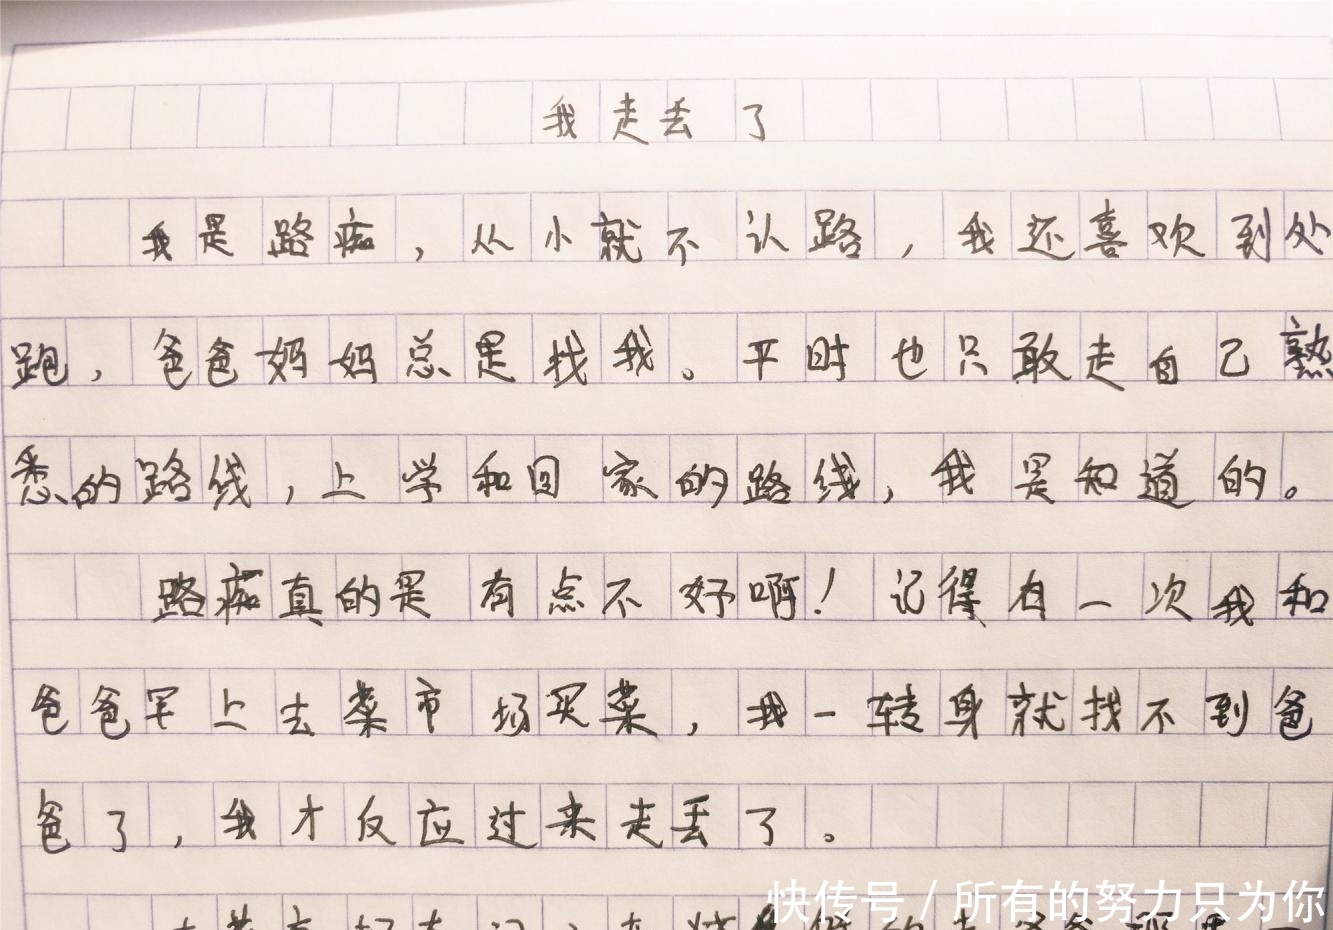 我走丢了
我是路痴，从小就不认路，我还喜欢到处
跑，爸爸妈妈总是找我。平时也只敢走自己熟
悉的路线，上学和回家的路线，我是知道的。
路痴真的是有点不好啊！记得有一次我和
爸爸早上去菜市场买菜，我一转身就找不到爸
爸了，我才反应过来走丢了。
快传号/所有的努力只为你